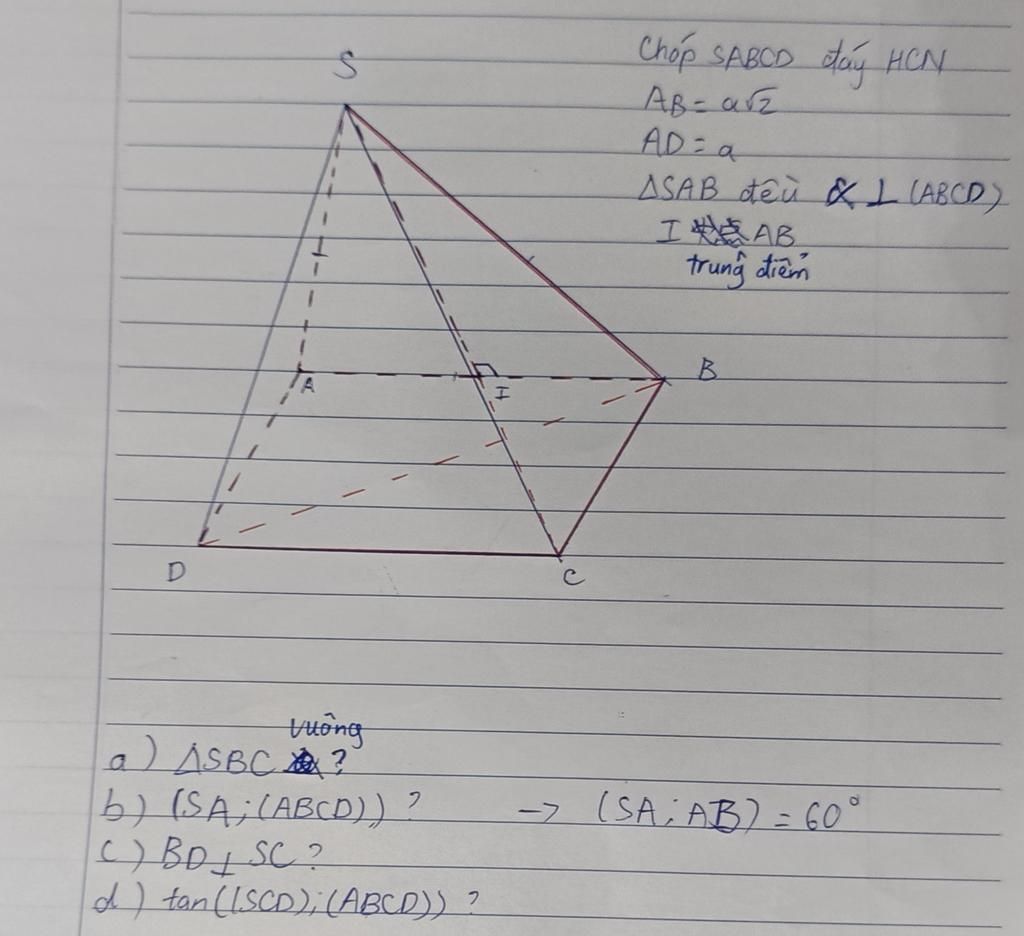 S
Chóp SABCD đáy HCN
AB = a√2
AD = a
ΔSAB đều & ⊥ (ABCD)
I AB
trung điểm
A
I
B
D
C
vuông
a) ΔSBC ?
b) (SA; (ABCD)) ? -> (SA; AB) = 60°
c) BD ⊥ SC ?
d) tan((SCD); (ABCD)) ?